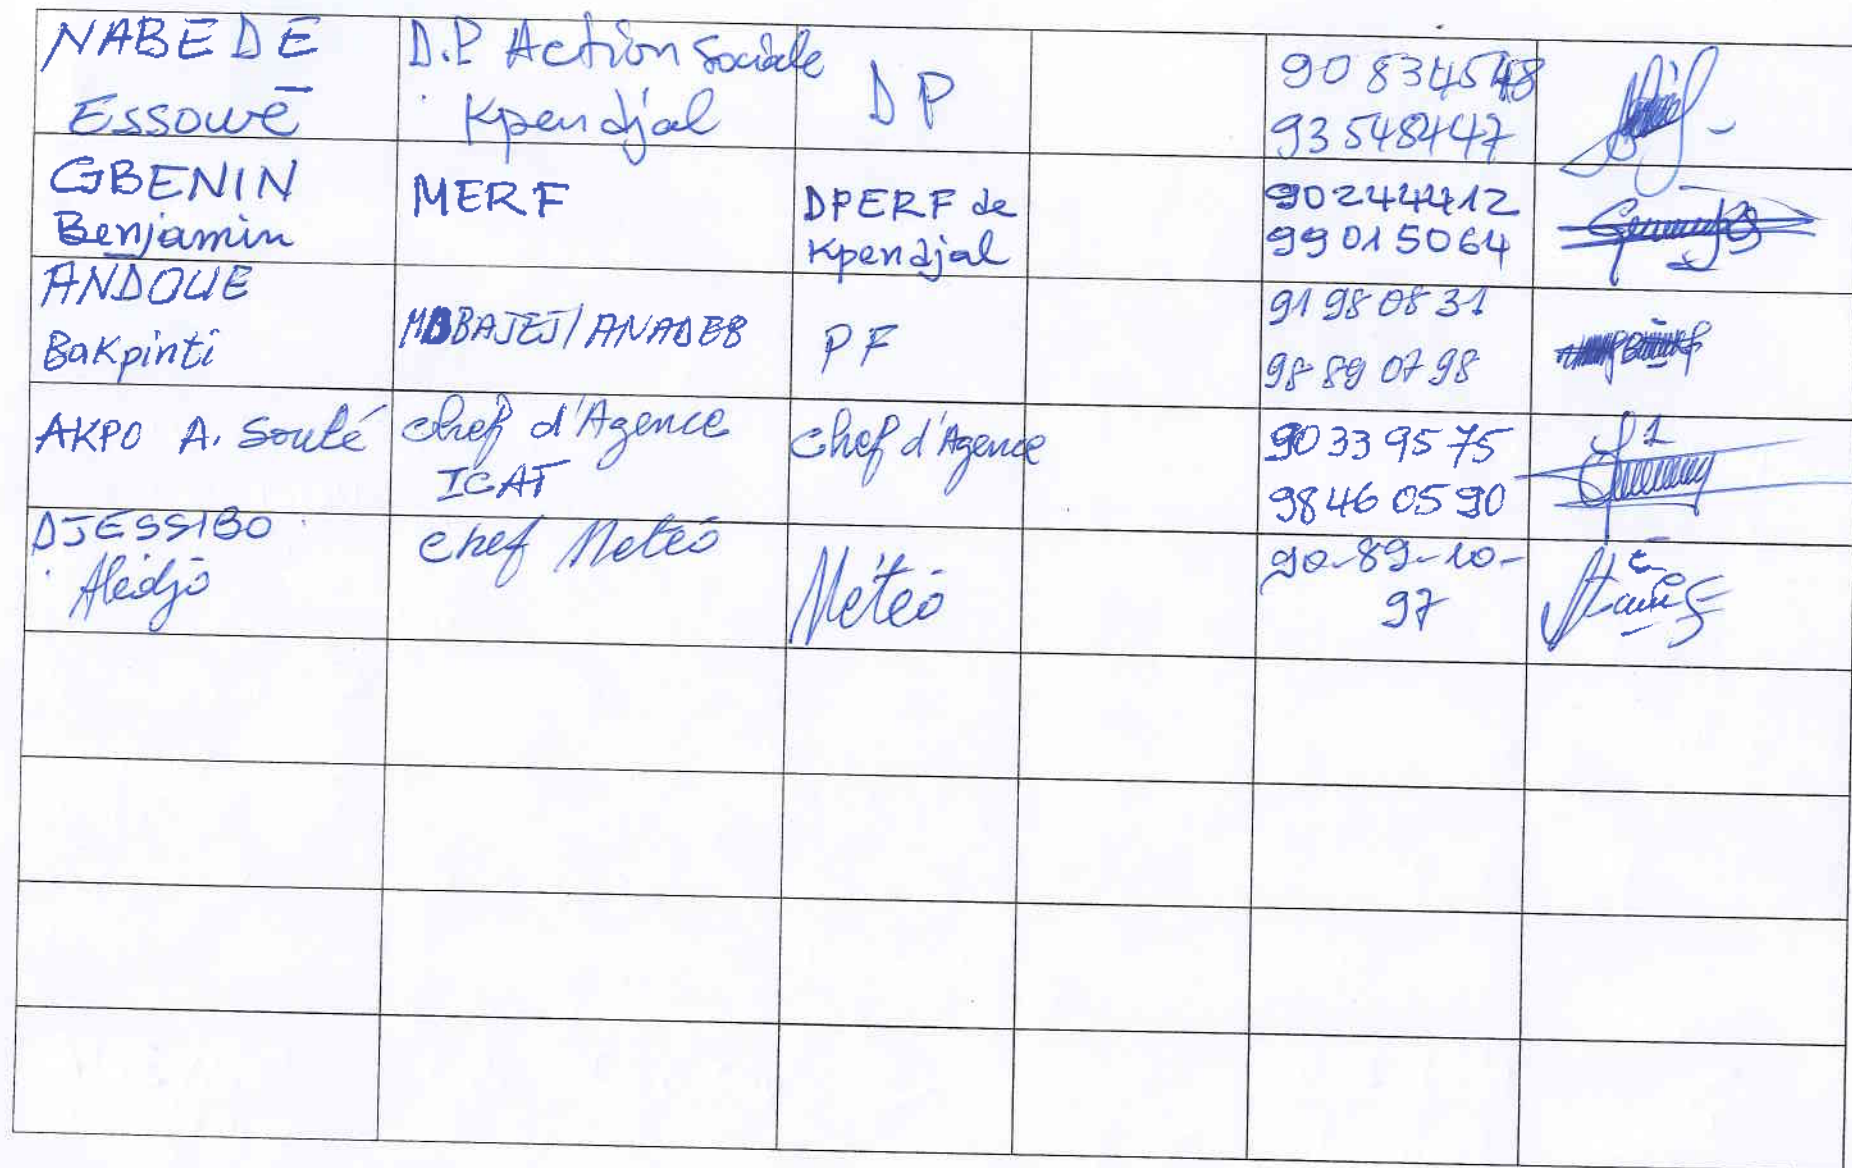 NABEDE
Essowè
D.P Action Sociale
Kpendjal
DP
90 834548
93548447
GBENIN
Benjamin
MERF
DPERF de
Kpendjal
90244412
99015064
ANDOUE
Bakpinti
MDBAJEJ/ANADEB
PF
91 98 08 31
98 89 07 98
AKPO A. Soulé
chef d'Agence
ICAT
Chef d'Agence
90 33 95 75
98 46 05 90
DJESSIBO
Alédjo
chef Météo
Météo
90-89-10-
97